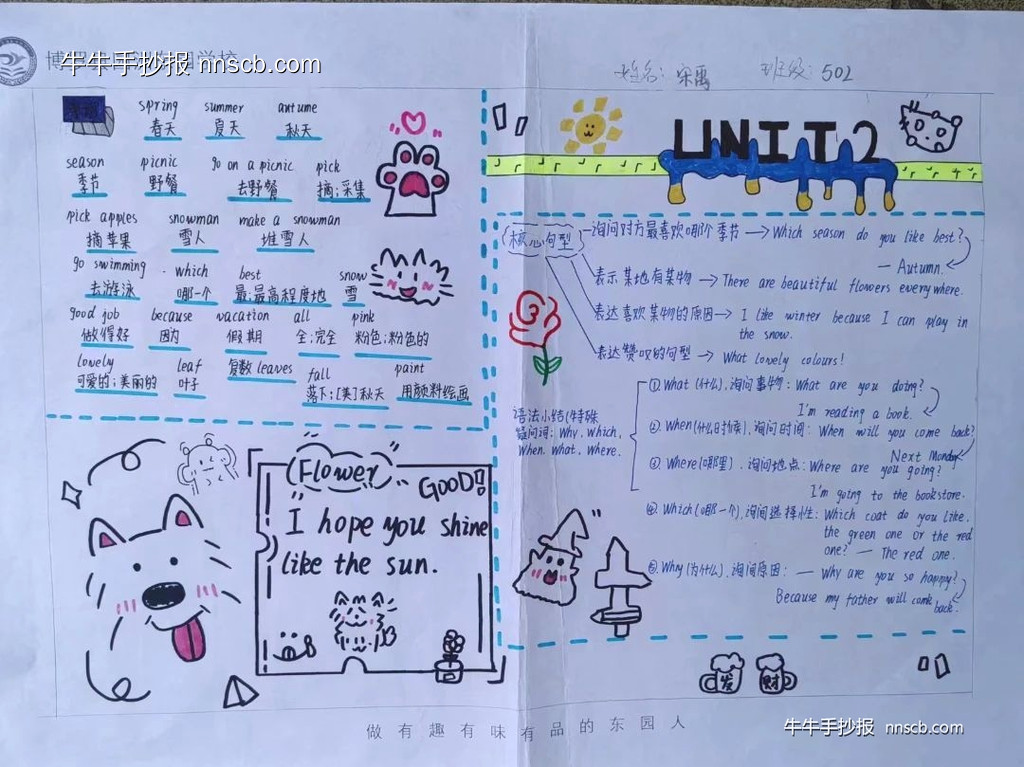 牛牛手抄报 nnscb.com
姓名：宋禹 班级：502
spring summer autume
春天 夏天 秋天
season picnic go on a picnic pick
季节 野餐 去野餐 摘；采集
pick apples snowman make a snowman
摘苹果 雪人 堆雪人
go swimming which best snow
去游泳 哪一个 最；最高程度地 雪
good job because vacation all pink
做得好 因为 假期 全；完全 粉色；粉色的
lovely leaf 复数leaves fall paint
可爱的；美丽的 叶子 落下；[美]秋天 用颜料绘画
Flower
GOOD!
I hope you shine
like the sun.
UNIT 2
核心句型
询问对方最喜欢哪个季节→Which season do you like best?
— Autumn.
表示某地有某物→There are beautiful flowers everywhere.
表达喜欢某物的原因→I like winter because I can play in
the snow.
表达赞叹的句型→What lovely colours!
语法小结(特殊
疑问词：Why, Which,
When, What, Where.
①What(什么)，询问事物：What are you doing?
I'm reading a book.
②When(什么时候)，询问时间：When will you come back?
Next Monday
③Where(哪里)，询问地点：Where are you going?
I'm going to the bookstore.
④Which(哪一个)，询问选择性：Which coat do you like,
the green one or the red
one? — The red one.
⑤Why(为什么)，询问原因：— Why are you so happy?
Because my father will come back.
发 财
做有趣有味有品的东园人
牛牛手抄报 nnscb.com